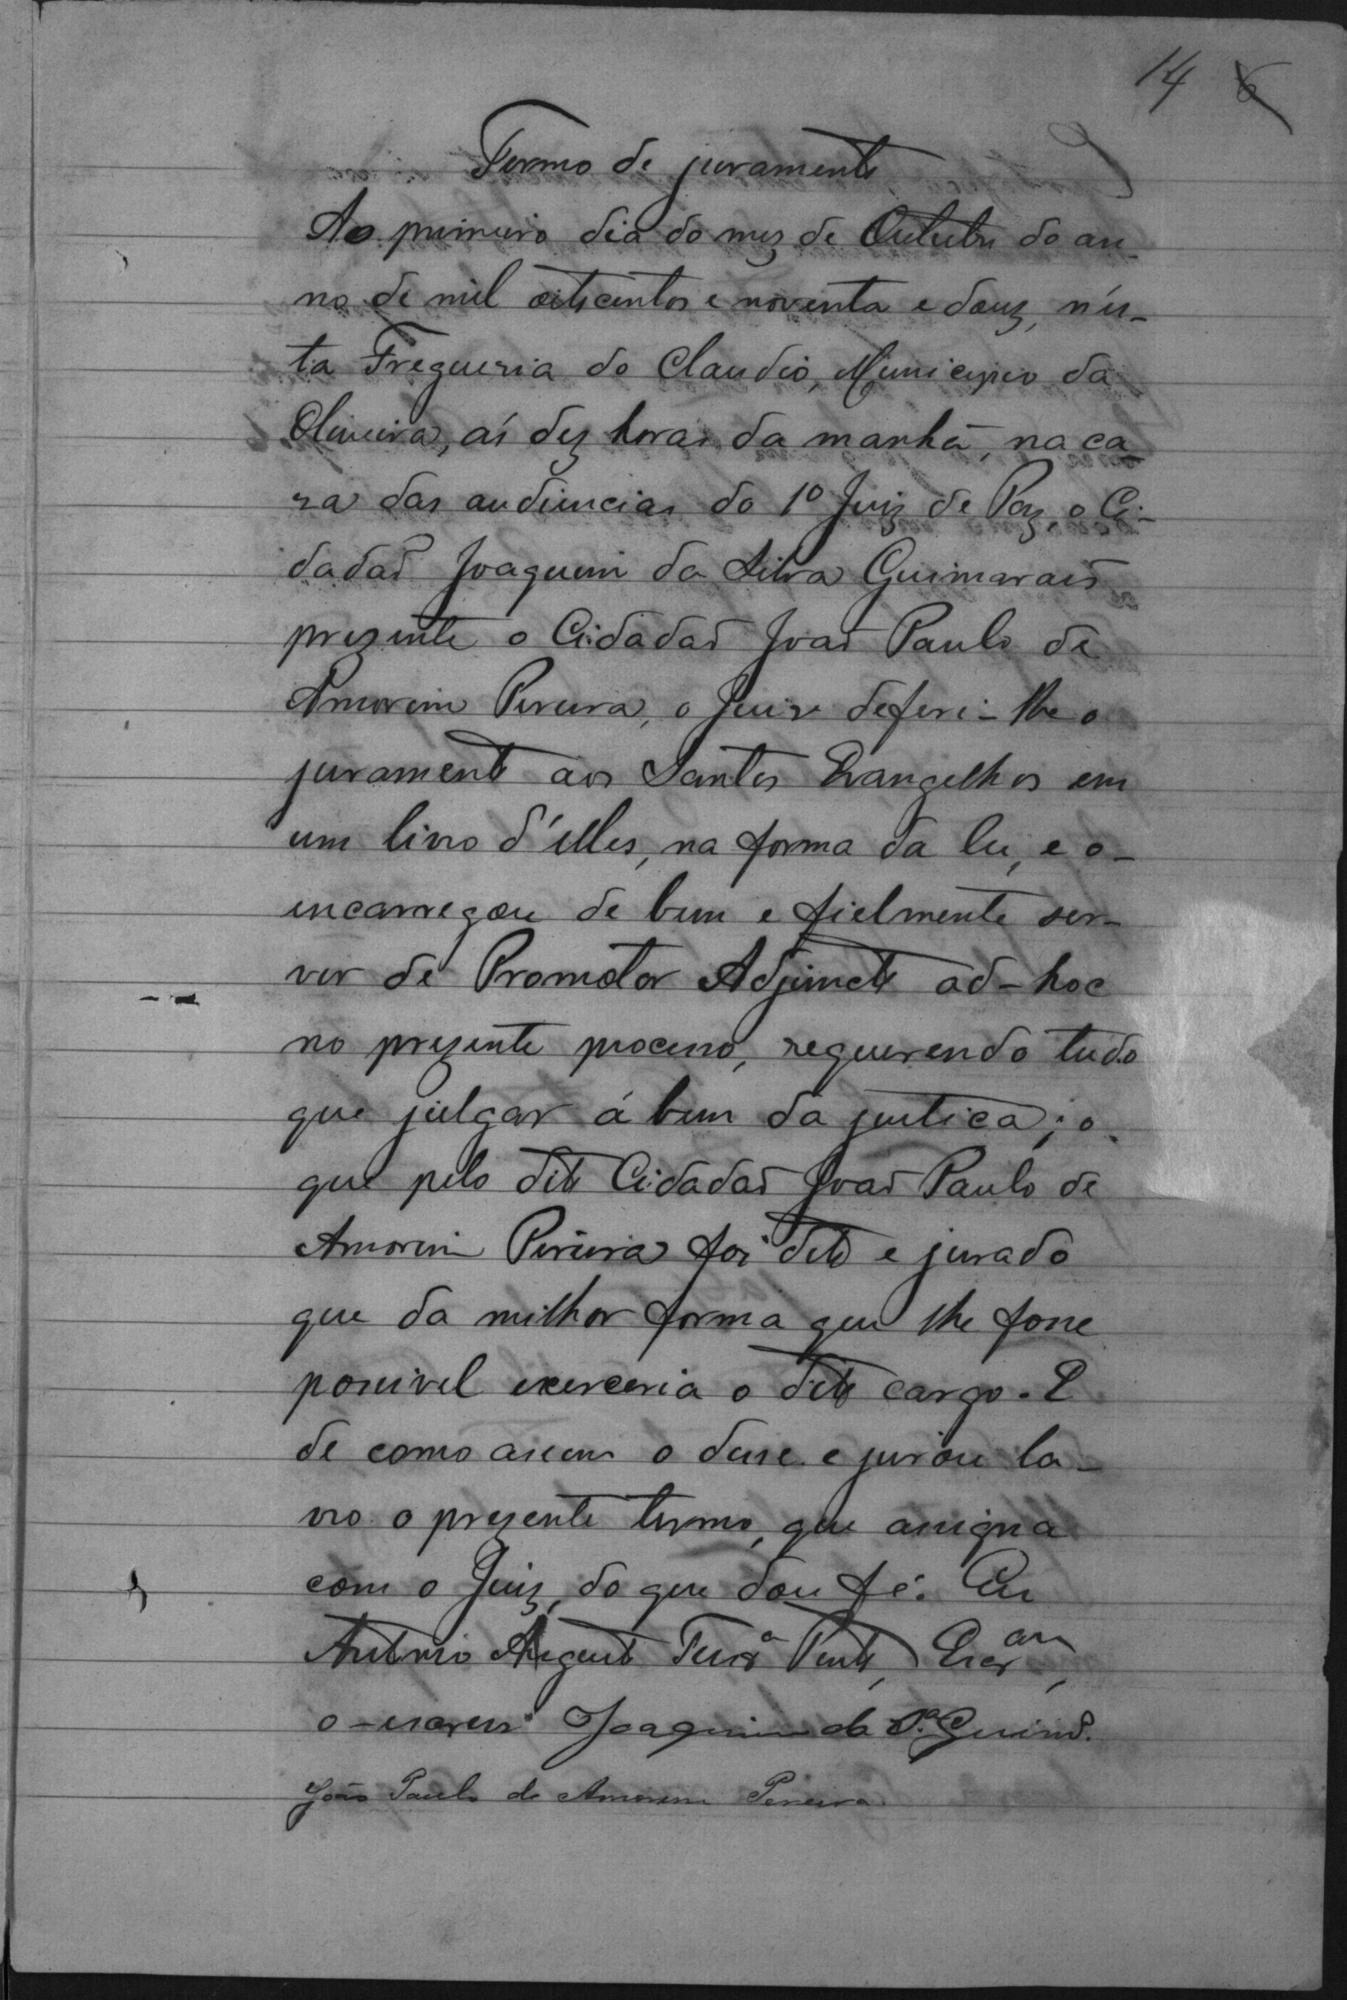 14 6
Termo de juramento
Ao primeiro dia do mez de Outubro do an-
no de mil oitocentos e noventa e douz, nés-
ta Freguezia do Claudio, Municipio da
Oliveira, ás dez horas da manhã, na ca-
za das audiencias do 1º Juiz de Paz, o Ci-
dadaõ Joaquim da Silva Guimaraes
prezente o Cidadaõ Joaõ Paulo de
Amorim Pereira, o Juiz deferi-lhe o
juramento aos Santos Evangelhos em
um livro d'elles, na forma da lei, e o-
encarregou de bem e fielmente ser-
vir de Promotor Adjuncto ad-hoc
no prezente processo, requerendo tudo
que julgar á bem da justiça; o
que pelo dito Cidadaõ Joaõ Paulo de
Amorim Pereira foi dito e jurado
que da milhor forma que lhe fosse
possivel exerceria o dito cargo. E
de como assim o disse e jurou la-
vro o prezente termo, que assigna
com o Juiz, do que dou fé. Eu
Antonio Teixrª Pinto, Escram,
o-escrevi Joaquim da Sª Guimes.
João Paulo de Amorim Pereira